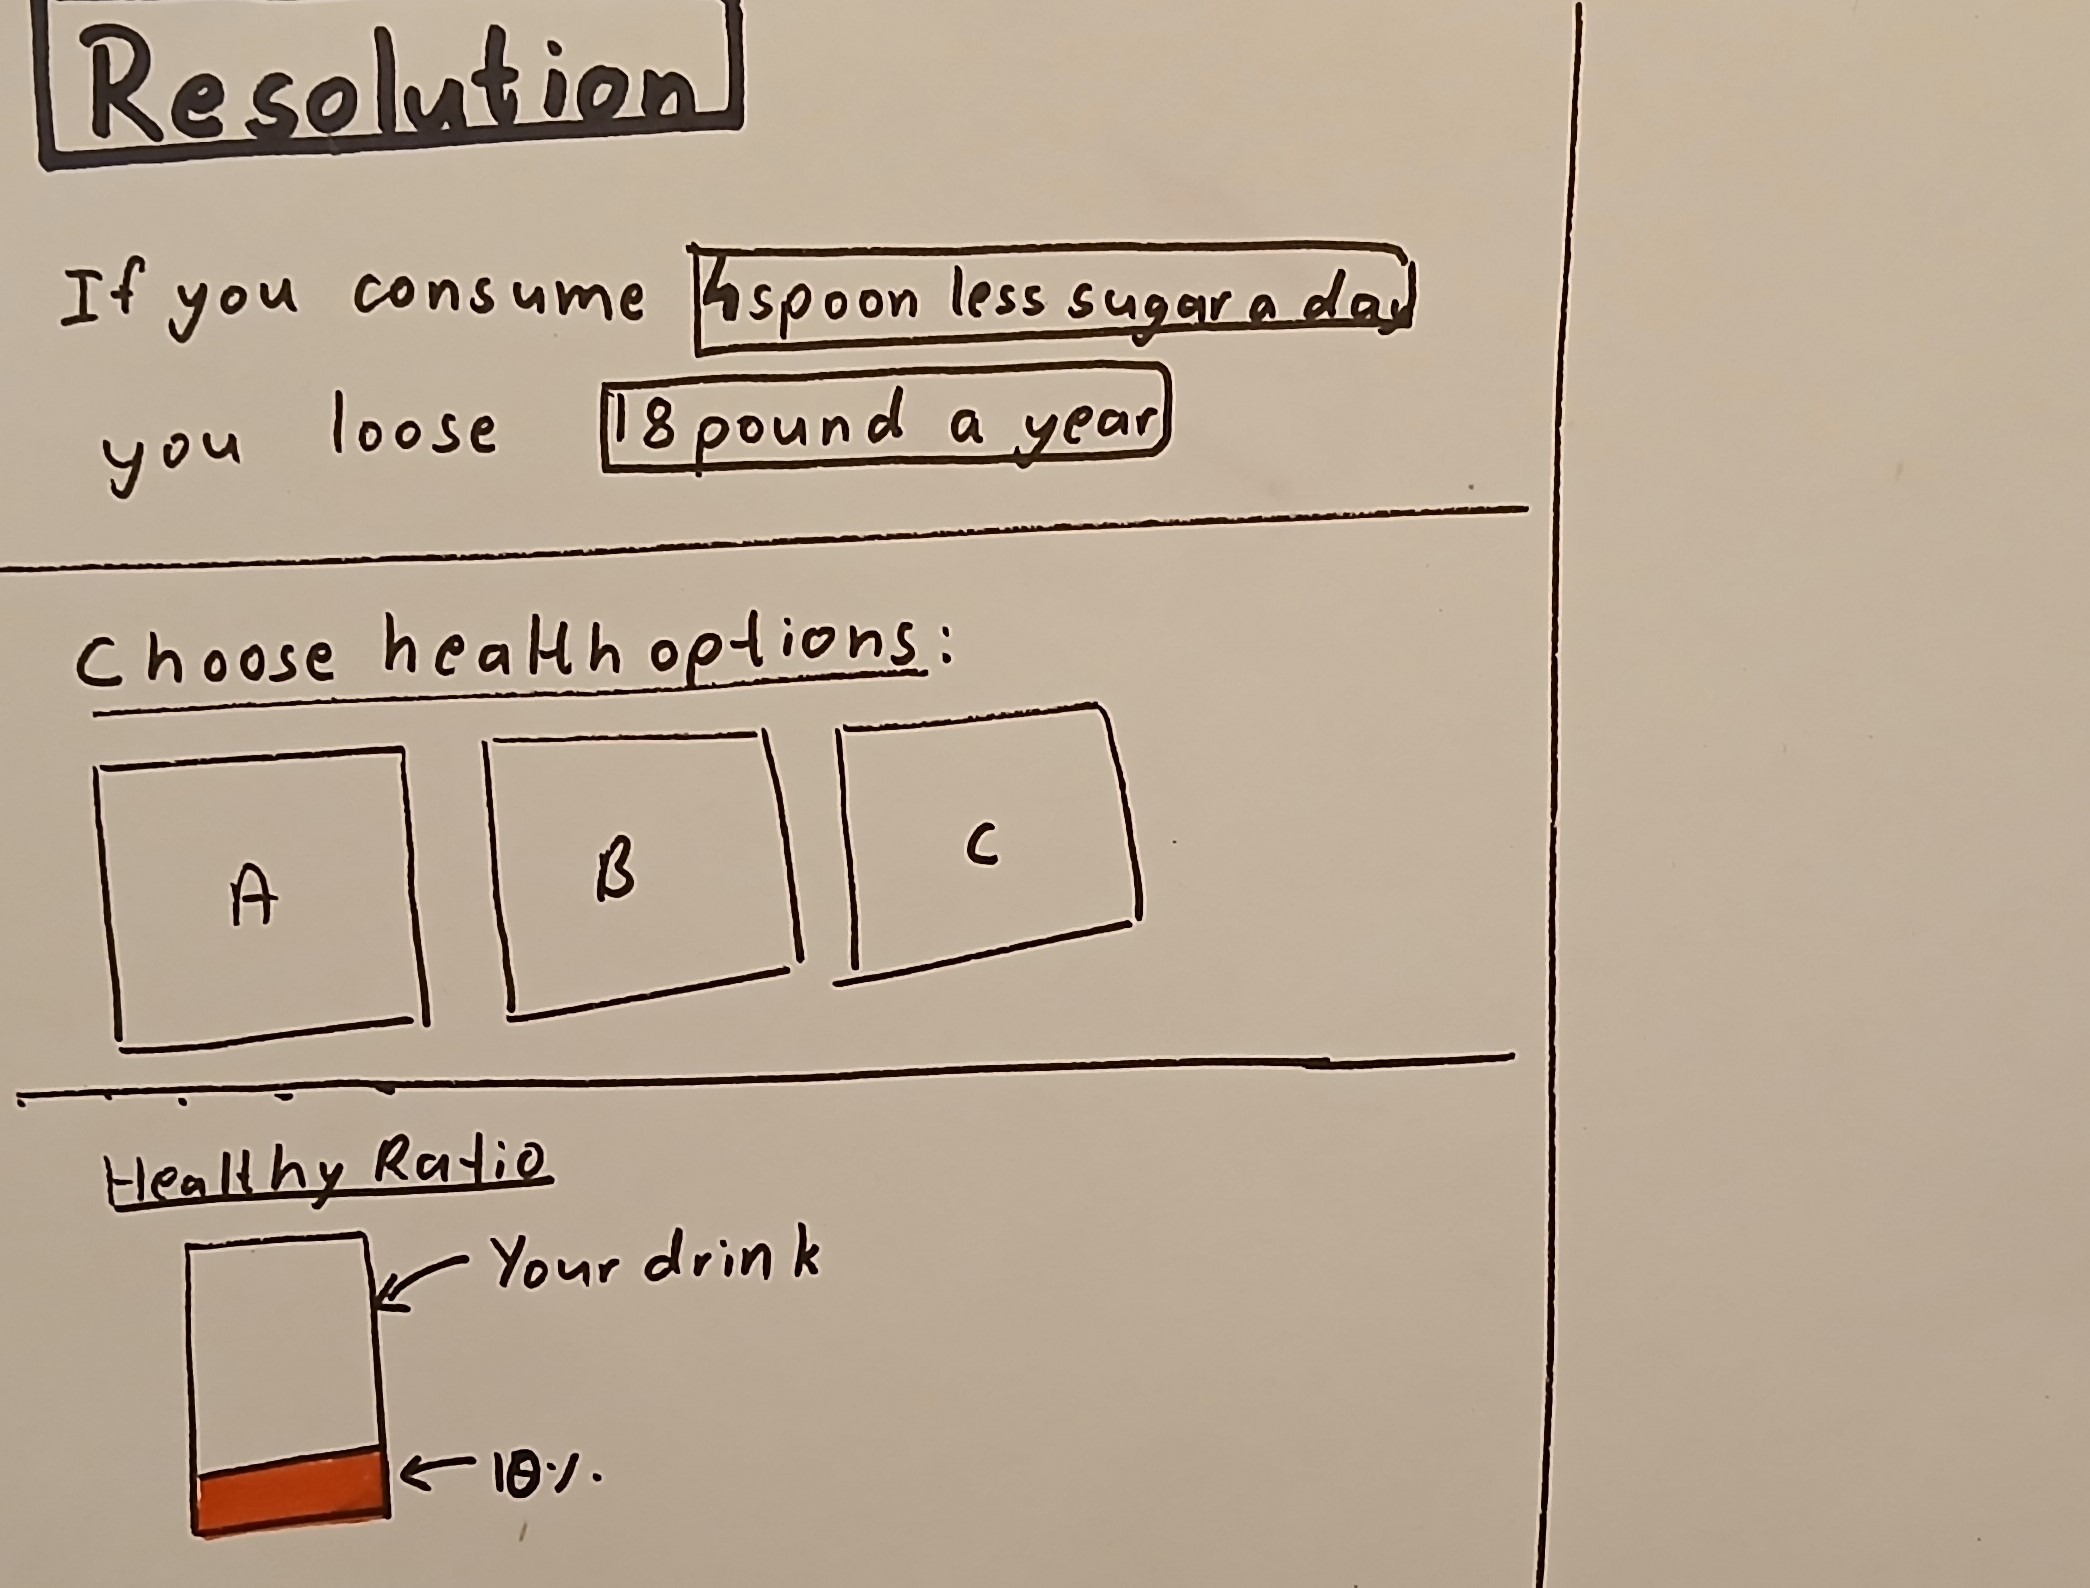 Resolution
If you consume 4 spoon less sugar a day
you loose 18 pound a year
Choose health options:
A B C
Healthy Ratio
Your drink
10%